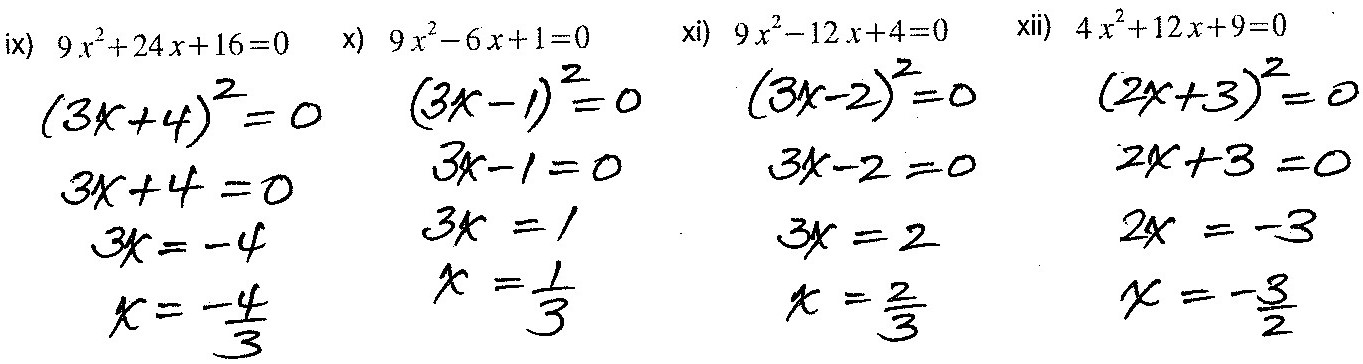 ix) 9x²+24x+16=0
(3x+4)²=0
3x+4=0
3x=-4
x=-4/3
x) 9x²-6x+1=0
(3x-1)²=0
3x-1=0
3x=1
x=1/3
xi) 9x²-12x+4=0
(3x-2)²=0
3x-2=0
3x=2
x=2/3
xii) 4x²+12x+9=0
(2x+3)²=0
2x+3=0
2x=-3
x=-3/2